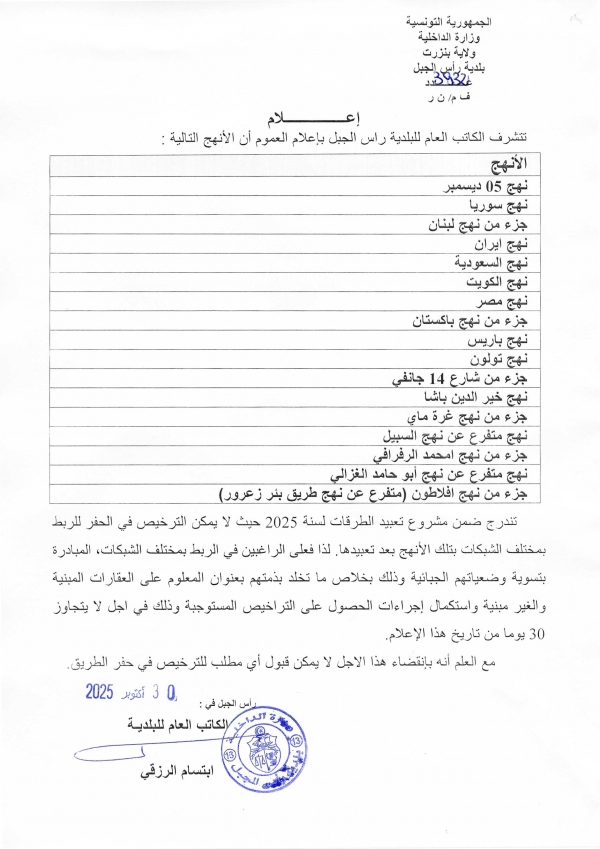 الجمهورية التونسية
وزارة الداخلية
ولاية بنزرت
بلدية رأس الجبل
عدد 3932
ف م/ ن ر
إعـــــــــــــلام
تتشرف الكاتب العام للبلدية راس الجبل بإعلام العموم أن الأنهج التالية :
الأنهج
نهج 05 ديسمبر
نهج سوريا
جزء من نهج لبنان
نهج ايران
نهج السعودية
نهج الكويت
نهج مصر
جزء من نهج باكستان
نهج باريس
نهج تولون
جزء من شارع 14 جانفي
نهج خير الدين باشا
جزء من نهج غرة ماي
نهج متفرع عن نهج السبيل
جزء من نهج امحمد الرفرافي
نهج متفرع عن نهج أبو حامد الغزالي
جزء من نهج افلاطون (متفرع عن نهج طريق بئر زعرور)
تندرج ضمن مشروع تعبيد الطرقات لسنة 2025 حيث لا يمكن الترخيص في الحفر للربط
بمختلف الشبكات بتلك الأنهج بعد تعبيدها. لذا فعلى الراغبين في الربط بمختلف الشبكات، المبادرة
بتسوية وضعياتهم الجبائية وذلك بخلاص ما تخلد بذمتهم بعنوان المعلوم على العقارات المبنية
والغير مبنية واستكمال إجراءات الحصول على التراخيص المستوجبة وذلك في اجل لا يتجاوز
30 يوما من تاريخ هذا الإعلام.
مع العلم أنه بإنقضاء هذا الاجل لا يمكن قبول أي مطلب للترخيص في حفر الطريق.
30 أكتوبر 2025
رأس الجبل في :
الكاتب العام للبلدية
ابتسام الرزقي
وزارة الداخلية
13
13
بلدية رأس الجبل